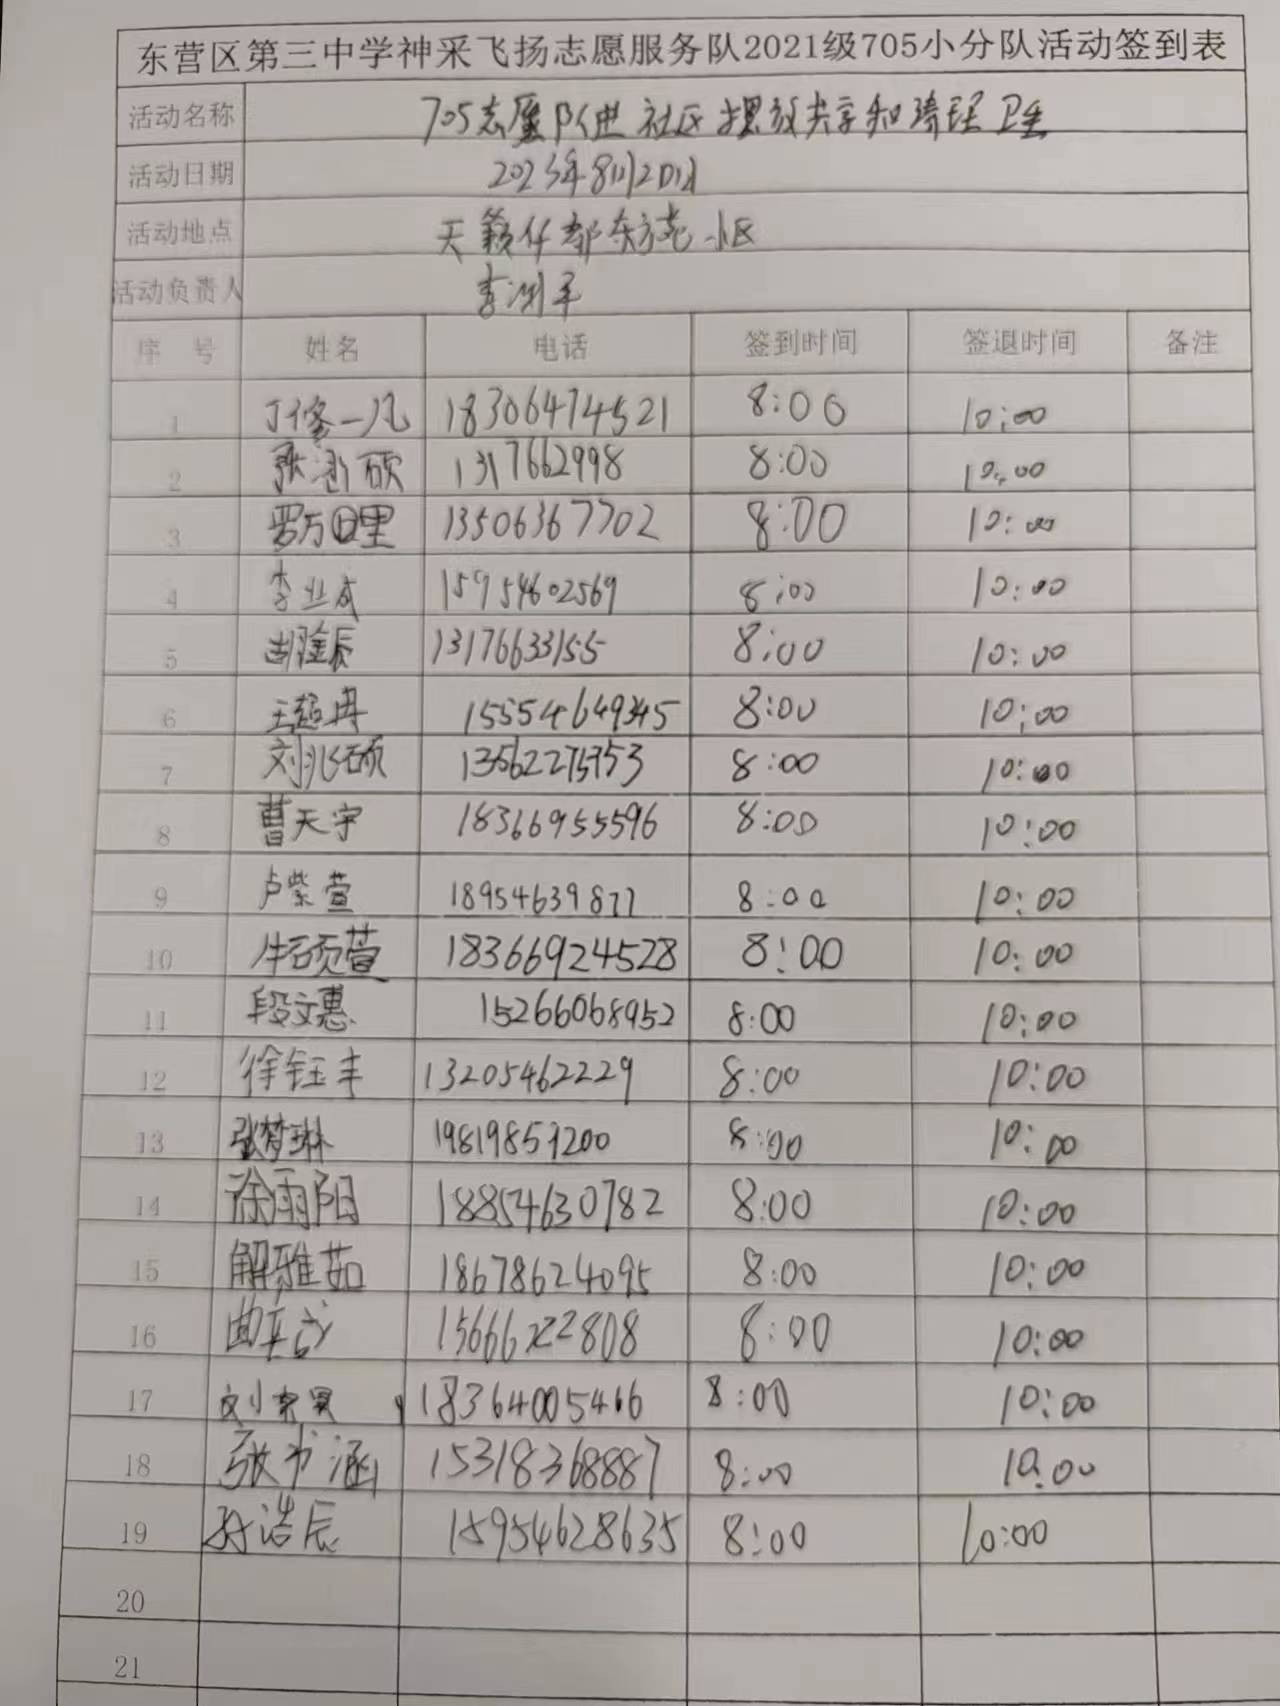 东营区第三中学神采飞扬志愿服务队2021级705小分队活动签到表
活动名称 705志愿队进社区摆放共享和清理卫生
活动日期 2023年8月20日
活动地点 天籁华都东方苑小区
活动负责人 李
序 号 姓名 电话 签到时间 签退时间 备注
1 修一凡 18306474521 8:00 10:00
2 张 硕 1317662998 8:00 10:00
3 罗万里 13506367702 8:00 10:00
4 李业成 15954602569 8:00 10:00
5 胡 辰 13176633155 8:00 10:00
6 王超冉 15554649345 8:00 10:00
7 刘兆硕 8:00 10:00
8 曹天宇 18366955596 8:00 10:00
9 卢紫萱 18954639877 8:00 10:00
10 牛硕萱 18366924528 8:00 10:00
11 段文惠 15266068952 8:00 10:00
12 徐钰丰 13205462229 8:00 10:00
13 张梦琳 19819851200 8:00 10:00
14 徐雨阳 18854630782 8:00 10:00
15 解雅茹 18678624095 8:00 10:00
16 曲 15666222808 8:00 10:00
17 刘 18364005466 8:00 10:00
18 张书涵 15318368887 8:00 10:00
19 孙浩辰 15954628635 8:00 10:00
20
21